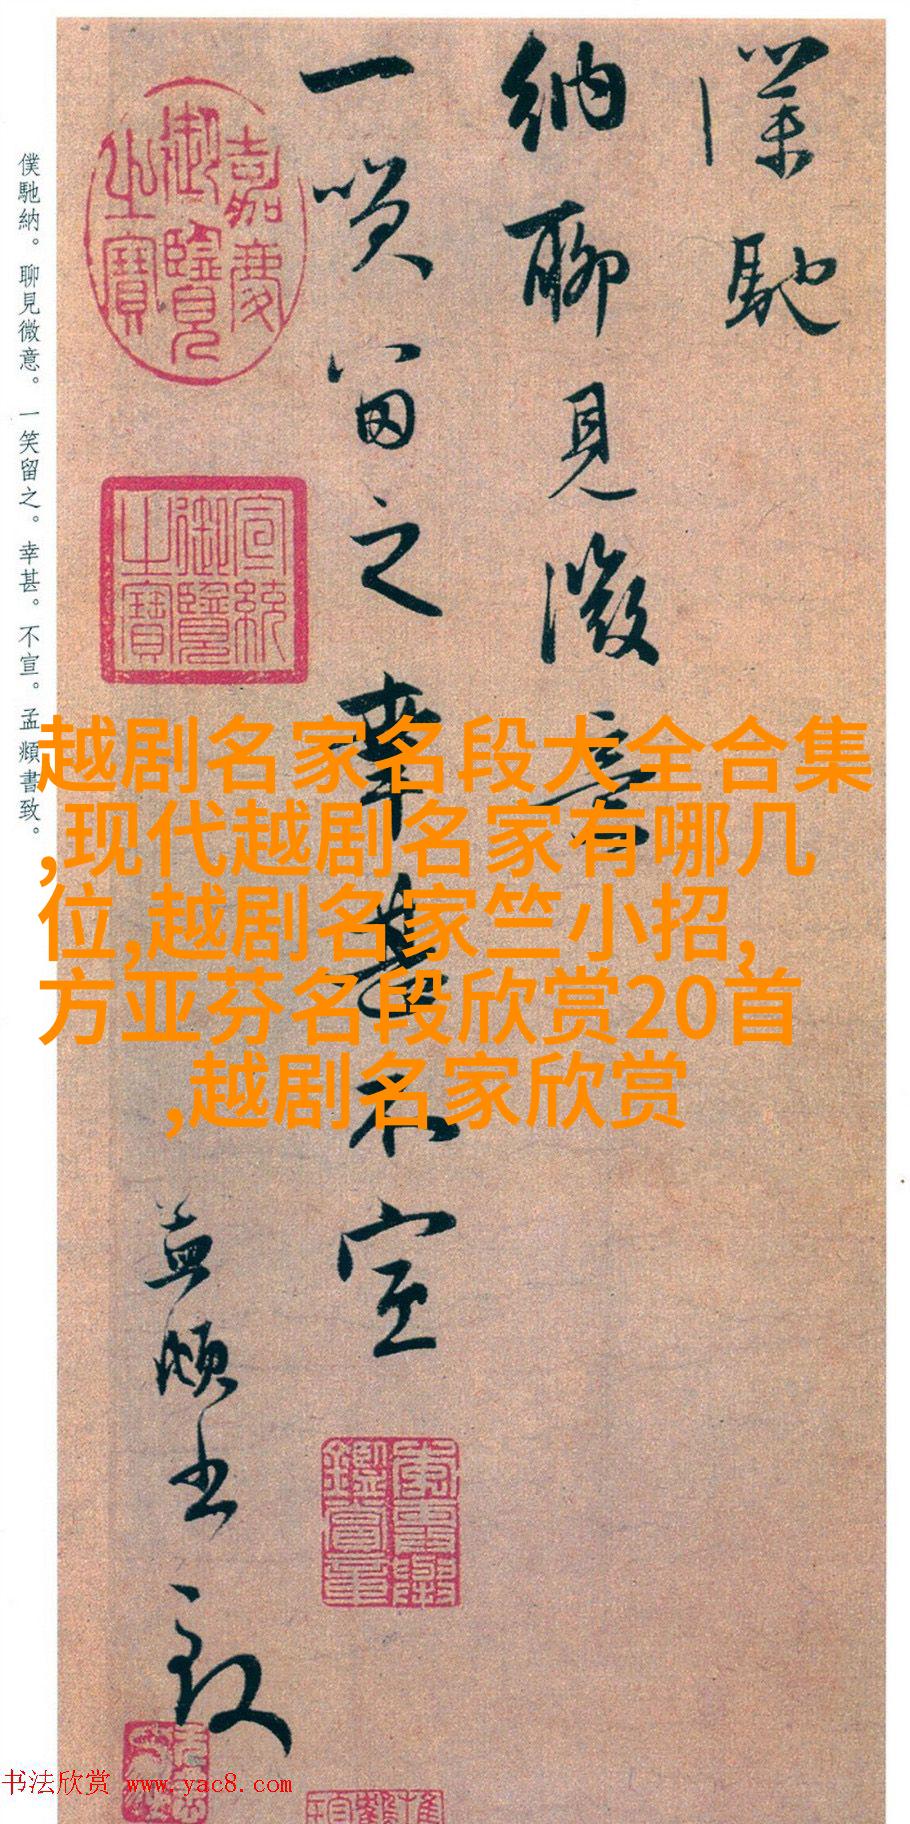 僕馳
納聊見微意
一笑留之幸甚不宣
孟頫書致
嘉慶御覽之寶
宣統御覽之寶
僕馳納。聊見微意。一笑留之。幸甚。不宣。孟頫書致。
越剧名家名段大全合集
,现代越剧名家有哪几
位,越剧名家竺小招,
方亚芬名段欣赏20首
,越剧名家欣赏
书法欣赏 www.yac8.com